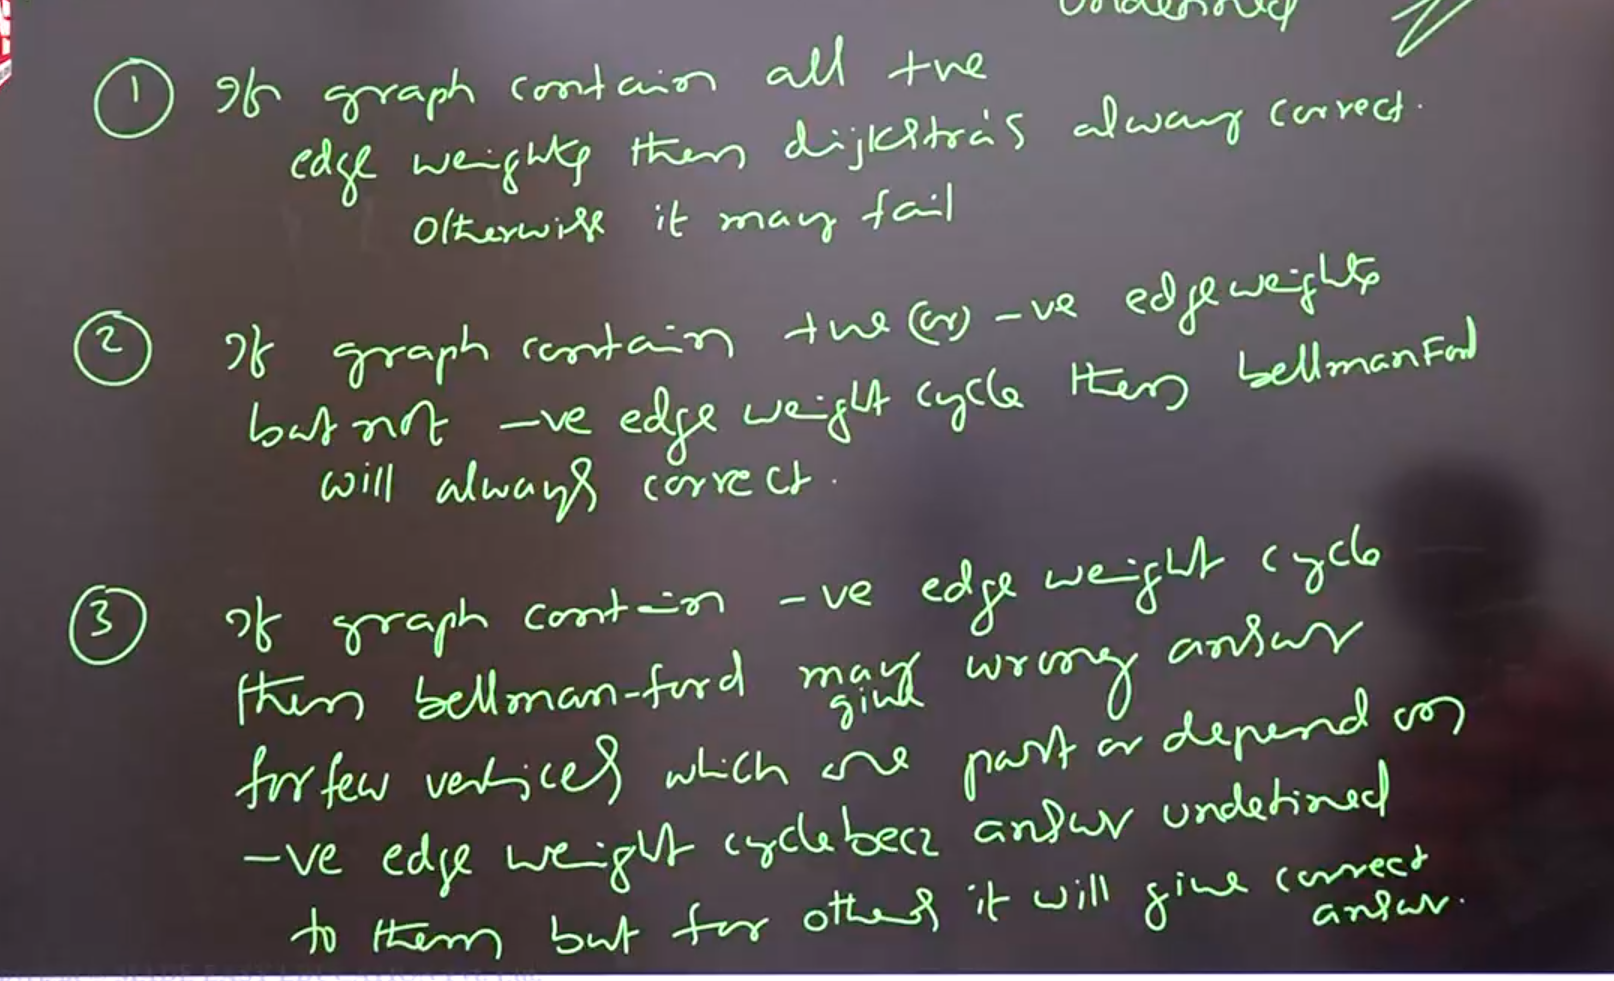 undefined
① If graph contain all +ve
edge weights then dijkstra's always correct.
otherwise it may fail
② If graph contain +ve (or) -ve edge weights
but not -ve edge weight cycle then bellmanFord
will always correct.
③ If graph contain -ve edge weight cycle
then bellman-ford may give wrong answer
for few vertices which are part or depend on
-ve edge weight cycle becz answer undefined
to them but for others it will give correct
answer.